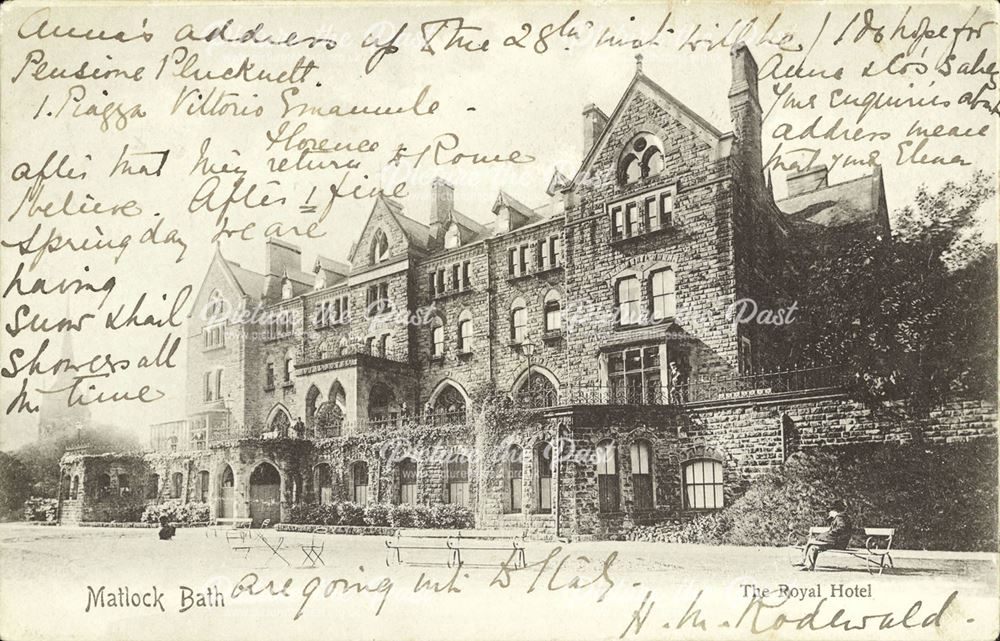 Anna's address up to the 28th inst will be
Pensione Plucknett.
1. Piazza Vittorio Emanuele.
Florence
after that may return to Rome
I believe. After 1 fine
Spring day we are
having
Snow & hail
Showers all
the time
I do hope for
Anna & Co's sake
Your enquiries about
address mean
that you & Elena
are going into Italy.
H. M. Rodewald.
Matlock Bath
The Royal Hotel
Picture the Past